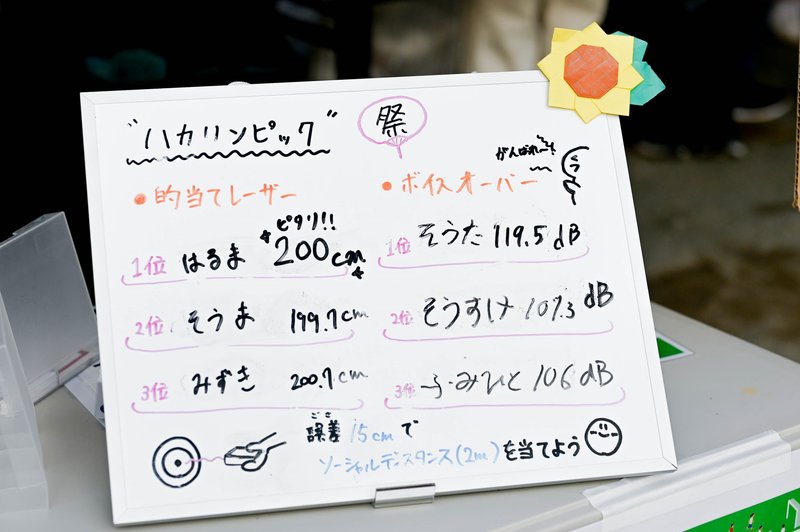 "ハカリンピック"
祭
がんばれ〜!
・的当てレーザー
ピタリ!!
1位 はるま 200cm
2位 そうま 199.7cm
3位 みずき 200.7cm
・ボイスオーバー
1位 そうた 119.5dB
2位 そうすけ 107.3dB
3位 ふみひと 106dB
ごさ
誤差15cmで
ソーシャルディスタンス(2m)を当てよう